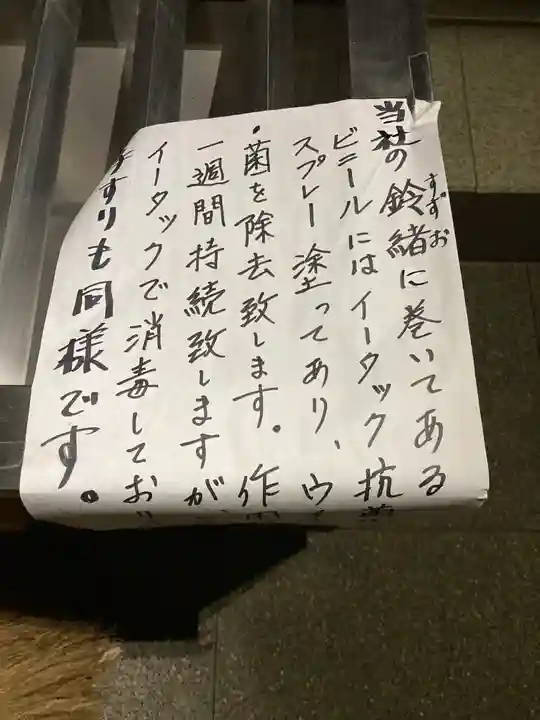 当社の鈴緒に巻いてある
すずお
ビニールにはイータック抗菌
スプレー塗ってあり、ウ
・菌を除去致します。作用
一週間持続致しますが
イータックで消毒しており
すりも同様です。